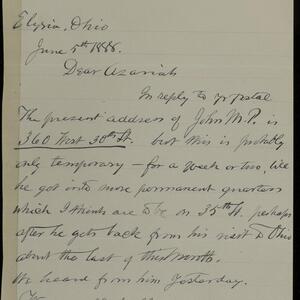 Elyria, Ohio
June 5th 1888.
Dear Azariah
In reply to yr postal
The present address of John M. P. is
360 West 30th St. but this is probably
only temporary - for a week or two, till
he got into more permanent quarters
which I think are to be on 35th St. perhaps
after he gets back from his visit to Ohio
about the last of this month.
We heard from him yesterday.